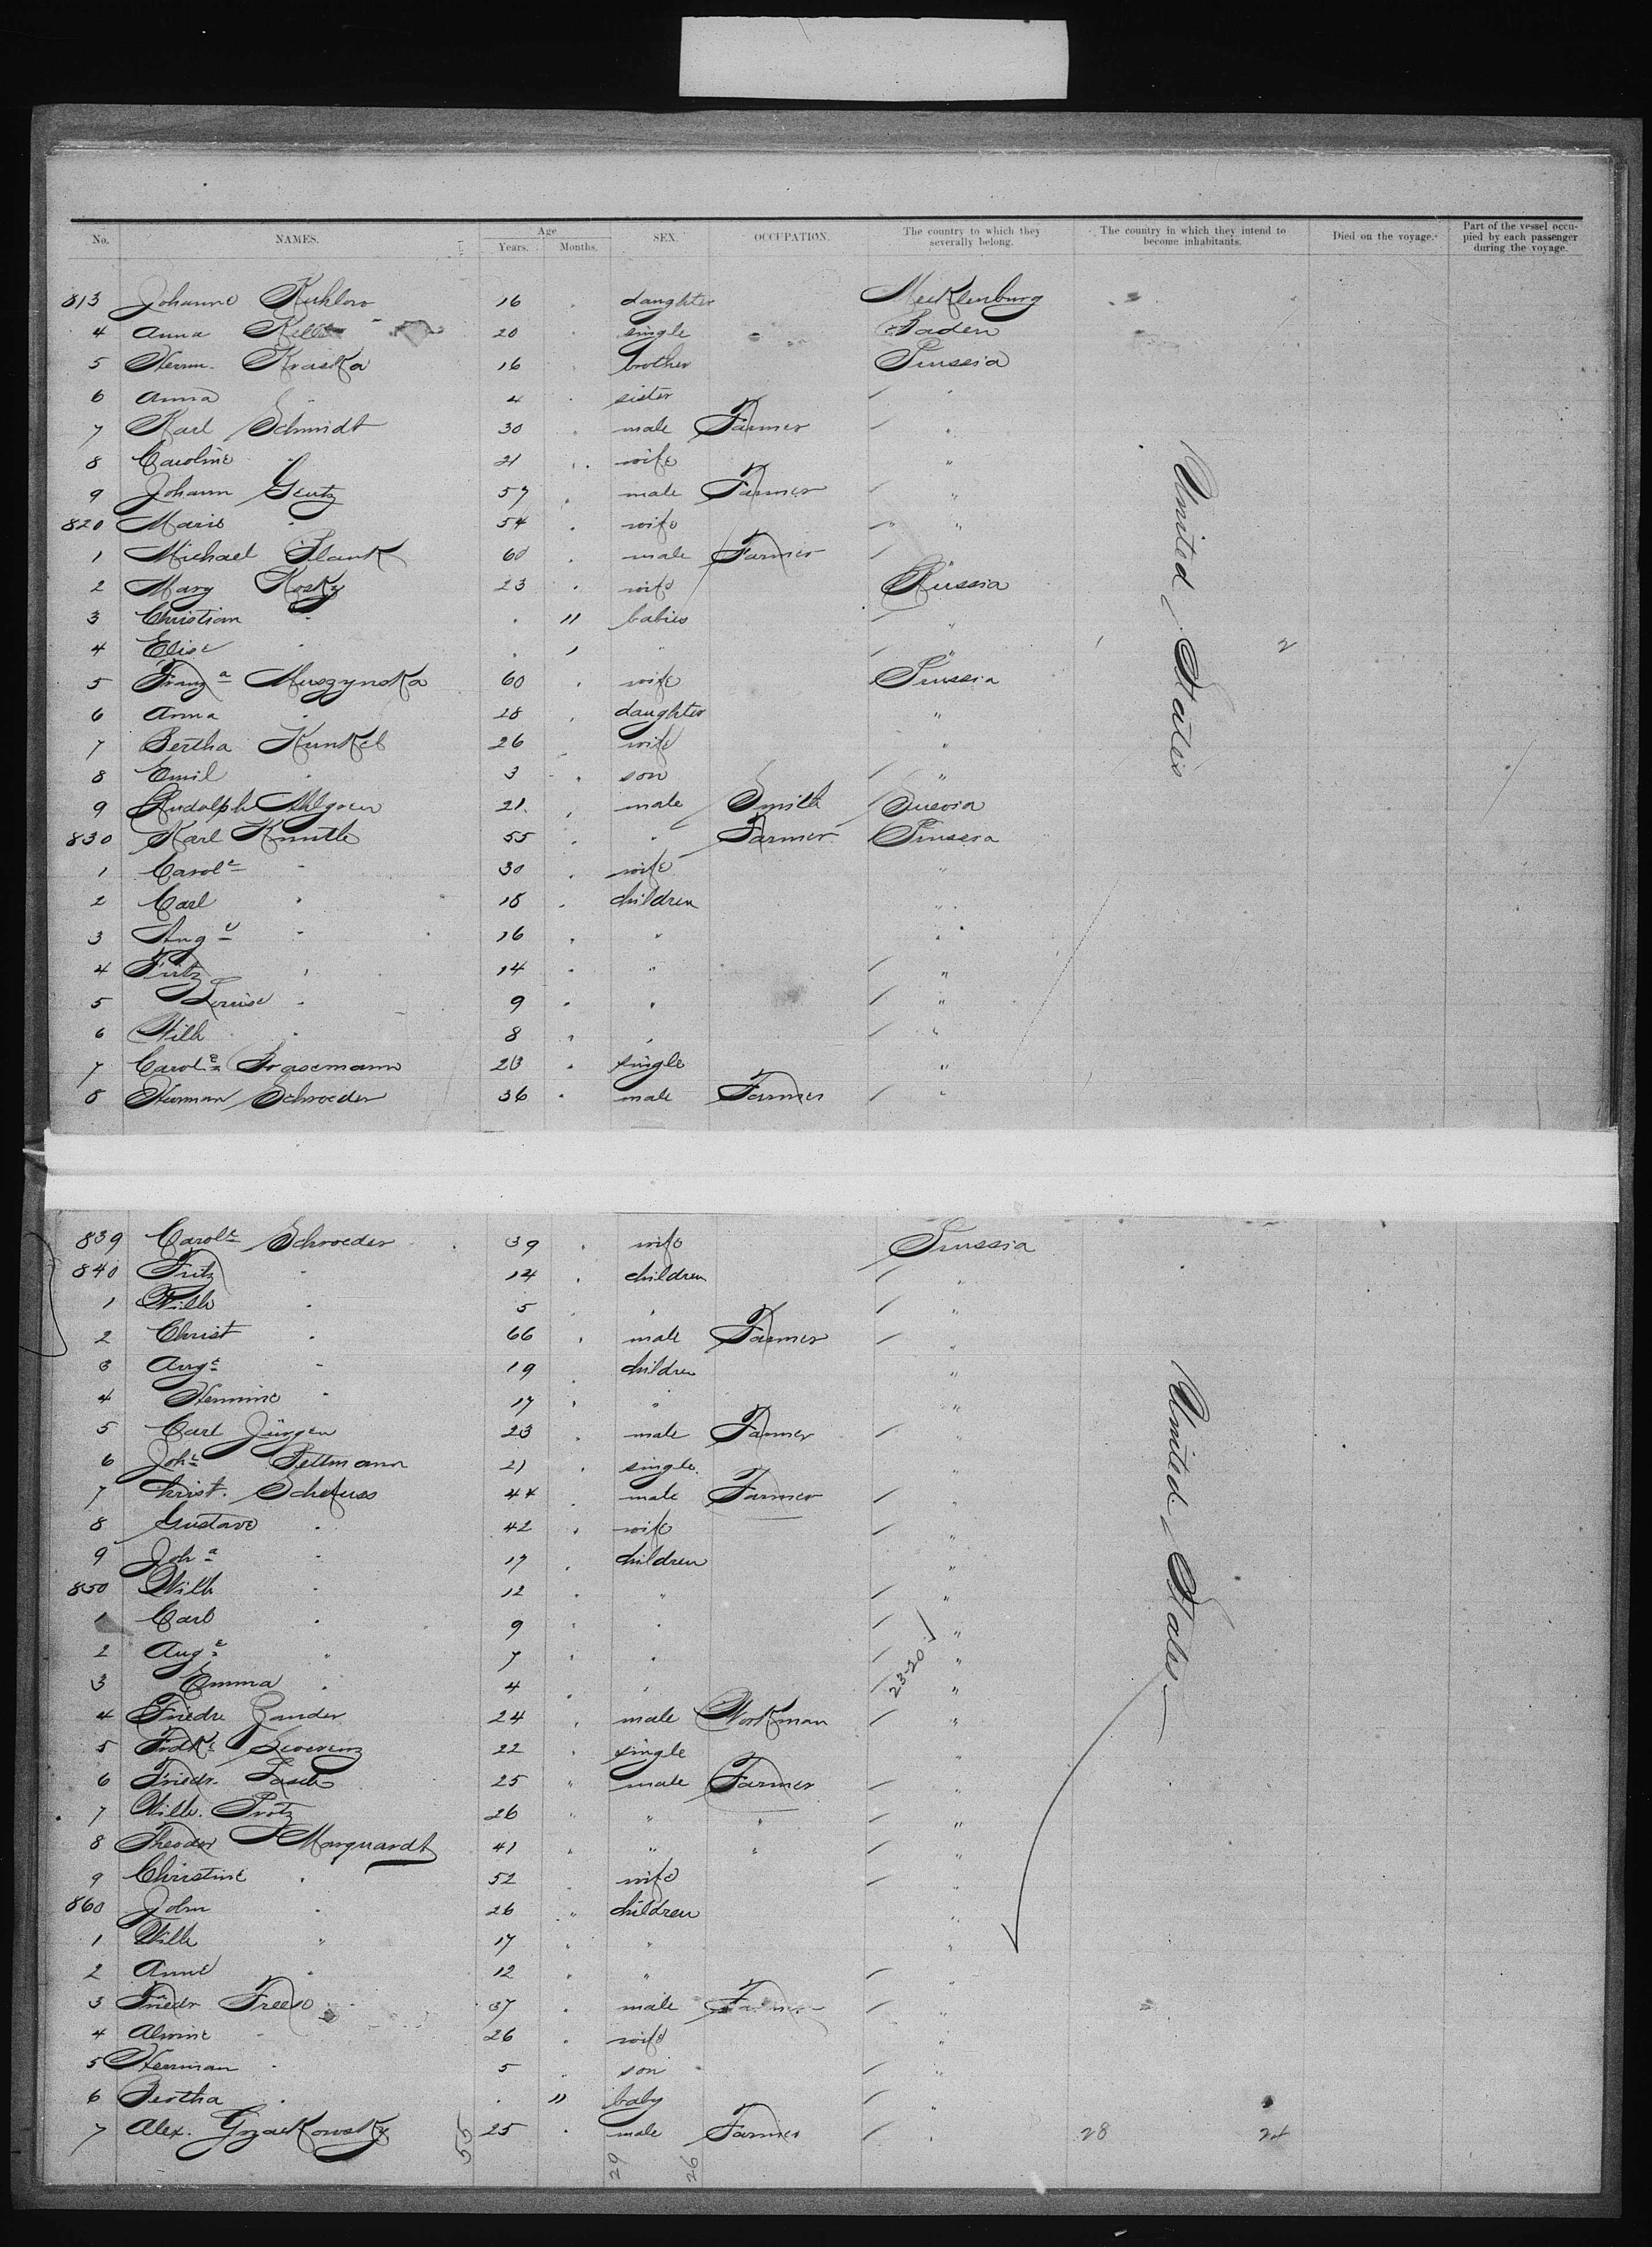 No. NAMES. Age Years. Months. SEX. OCCUPATION. The country to which they severally belong. The country in which they intend to become inhabitants. Died on the voyage. Part of the vessel occupied by each passenger during the voyage.
813 Johanne Kuhlow 16 daughter Mecklenburg
4 Anna 20 single Baden
5 Herm. Kraska 16 brother Prussia
6 Anna " 4 sister "
7 Karl Schmidt 30 male Farmer "
8 Caroline " 21 wife "
9 Johann Gentz 57 male Farmer "
820 Marie " 54 wife "
1 Michael Plank 60 male Farmer "
2 Mary Kosky 23 wife Russia
3 Christian " 11 babies "
4 Elise " 1 " " 2
5 Franz a Muszynska 60 wife Prussia
6 Anna " 28 daughter "
7 Bertha Kunkel 26 wife "
8 Emil " 3 son "
9 Rudolph Ahlgren 21 male Smith
830 Karl Knuth 55 " Farmer Prussia
1 Carole " 30 wife "
2 Carl " 18 children "
3 Aug " 16 " "
4 Fritz " 14 " "
5 Louise " 9 " "
6 Wilh " 8 " "
7 Carole Brasemann 23 single "
8 Herman Schroeder 36 male Farmer "
United States
839 Carole Schroeder 39 wife Prussia
840 Fritz " 14 children "
1 Wilh " 5 " "
2 Christ " 66 male Farmer "
3 Auge " 19 children "
4 Hermine " 17 " "
5 Carl Jürgen 23 male Farmer "
6 Johe Pettmann 21 single "
7 Christ. Schefuss 44 male Farmer "
8 Gustave " 42 wife "
9 Joha " 17 children "
850 Wilh " 12 " "
1 Carl " 9 " "
2 Auge " 7 " "
3 Emma " 4 " "
23-20
4 Friedr Zander 24 male Workman "
5 Frdke 22 single "
6 Friedr. Pasch 25 male Farmer "
7 Wilh. Protz 26 " " "
8 Theodor Marquardt 41 " " "
9 Christine " 52 wife "
860 John " 26 children "
1 Wilh " 17 " "
2 Anne " 12 " "
3 Friedr Freese 37 male Farmer "
4 Alwine " 26 wife "
5 Herrman " 5 son "
6 Bertha " 11 baby "
7 Alex. 25 male Farmer " 28
United States
55 29 26